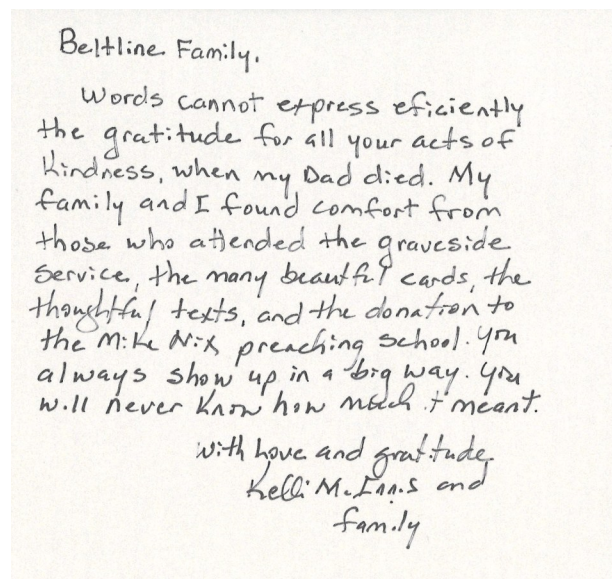 Beltline Family,
Words cannot express eficiently
the gratitude for all your acts of
Kindness, when my Dad died. My
family and I found comfort from
those who attended the graveside
service, the many beautiful cards, the
thoughtful texts, and the donation to
the Mike Nix preaching school. You
always show up in a big way. You
will never know how much it meant.
with Love and gratitude
Kelli McInnis and
family